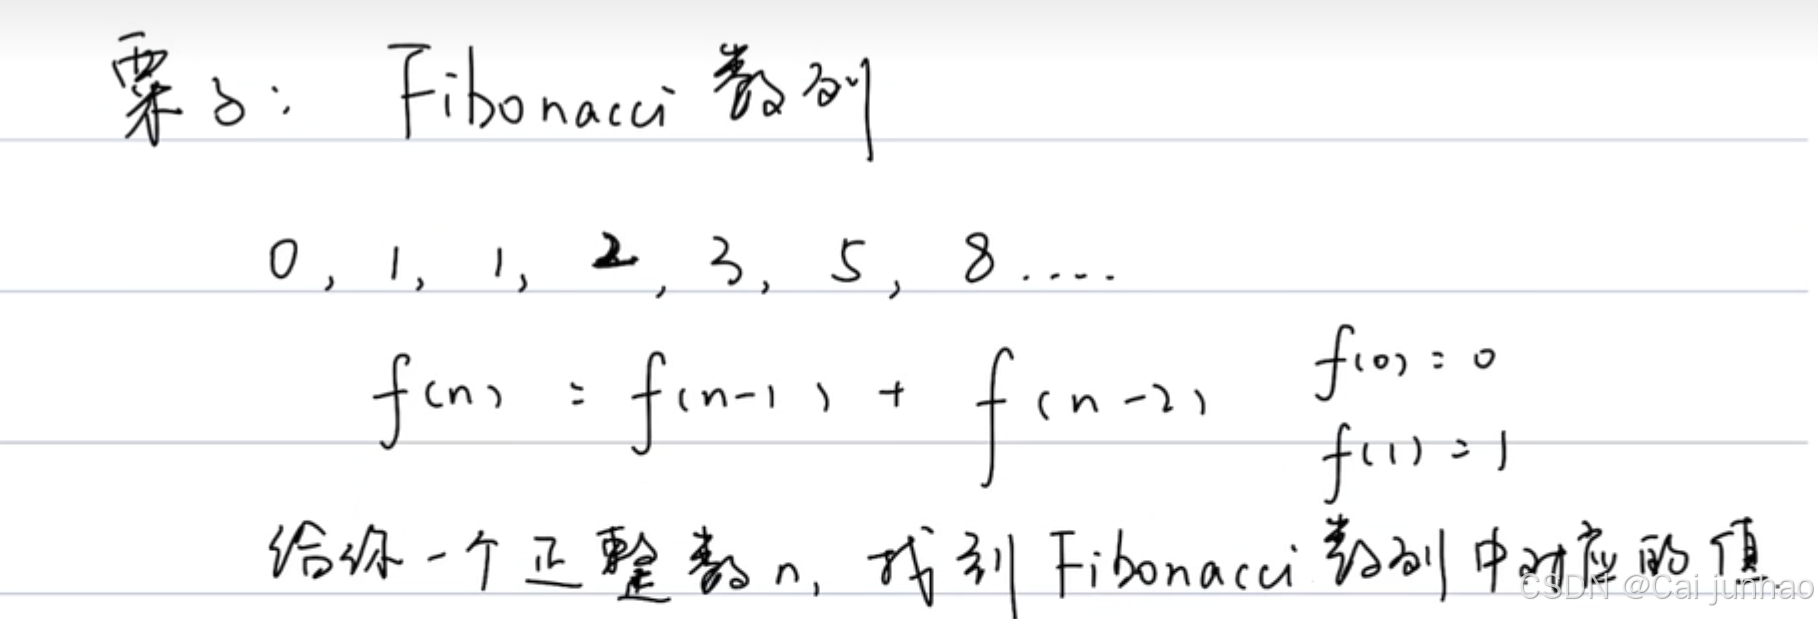 栗子： Fibonacci 数列
0, 1, 1, 2, 3, 5, 8 ....
f(n) = f(n-1) + f(n-2)
f(0) = 0
f(1) = 1
给你一个正整数n, 找到Fibonacci数列中对应的值
CSDN @Cai junhao